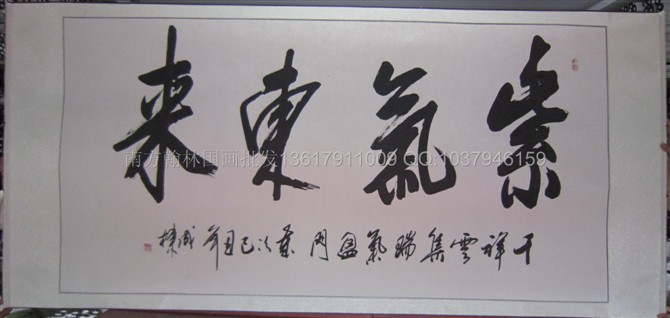 紫氣東來
南方翰林国画批发13617911009 QQ:1037946159
千祥雲集瑞氣盈門歲次己丑年